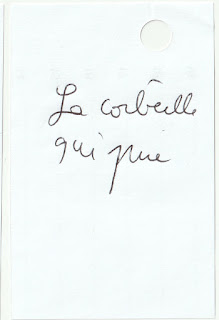 La corbeille
qui pue